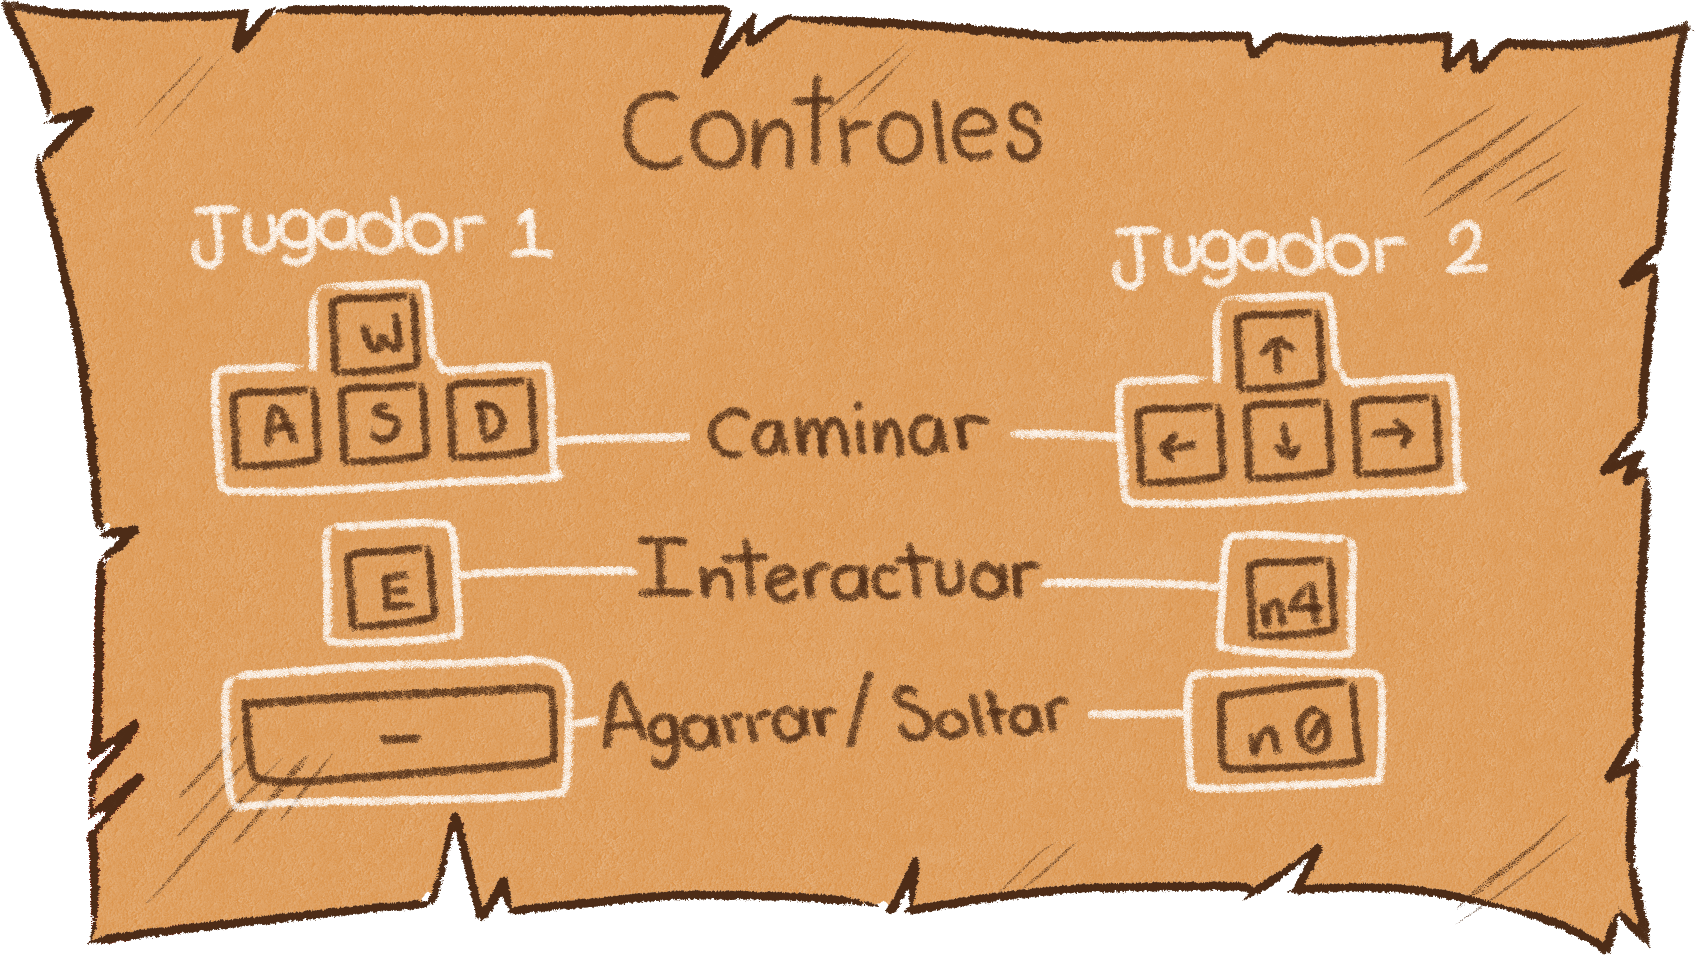 Controles
Jugador 1 Jugador 2
W ↑
A S D Caminar ← ↓ →
E Interactuar n4
- Agarrar/ Soltar n0